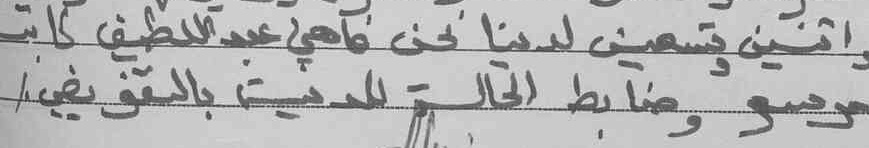 واتنين وتسعين لدينا نحن فاهي عبد اللطيف كاتب
مرسو وضابط الحالة المدنية بالتفويض /